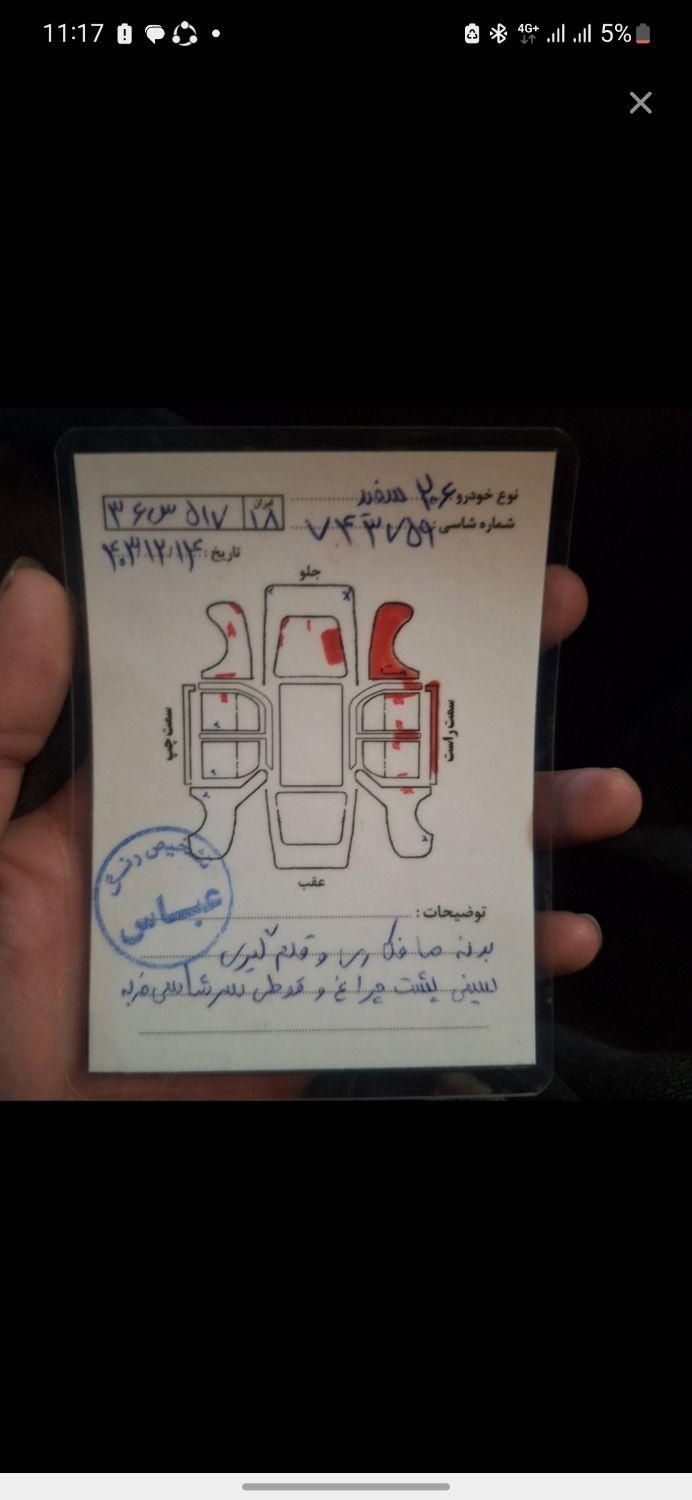 11:17
4G+
5%
نوع خودرو ۲۰۶ سفید
شماره شاسی: ۷۴۳۷۵۹
ایران
۱۸
۳۶ س ۵۱۷
تاریخ: ۴۰۳/۱۲/۱۴
جلو
سمت چپ
سمت راست
عقب
توضیحات:
بدنه صافکاری و قلم گیری
سینی پشت چراغ و قوطی سرشاسی ضربه
تشخیص رنگ
عباس